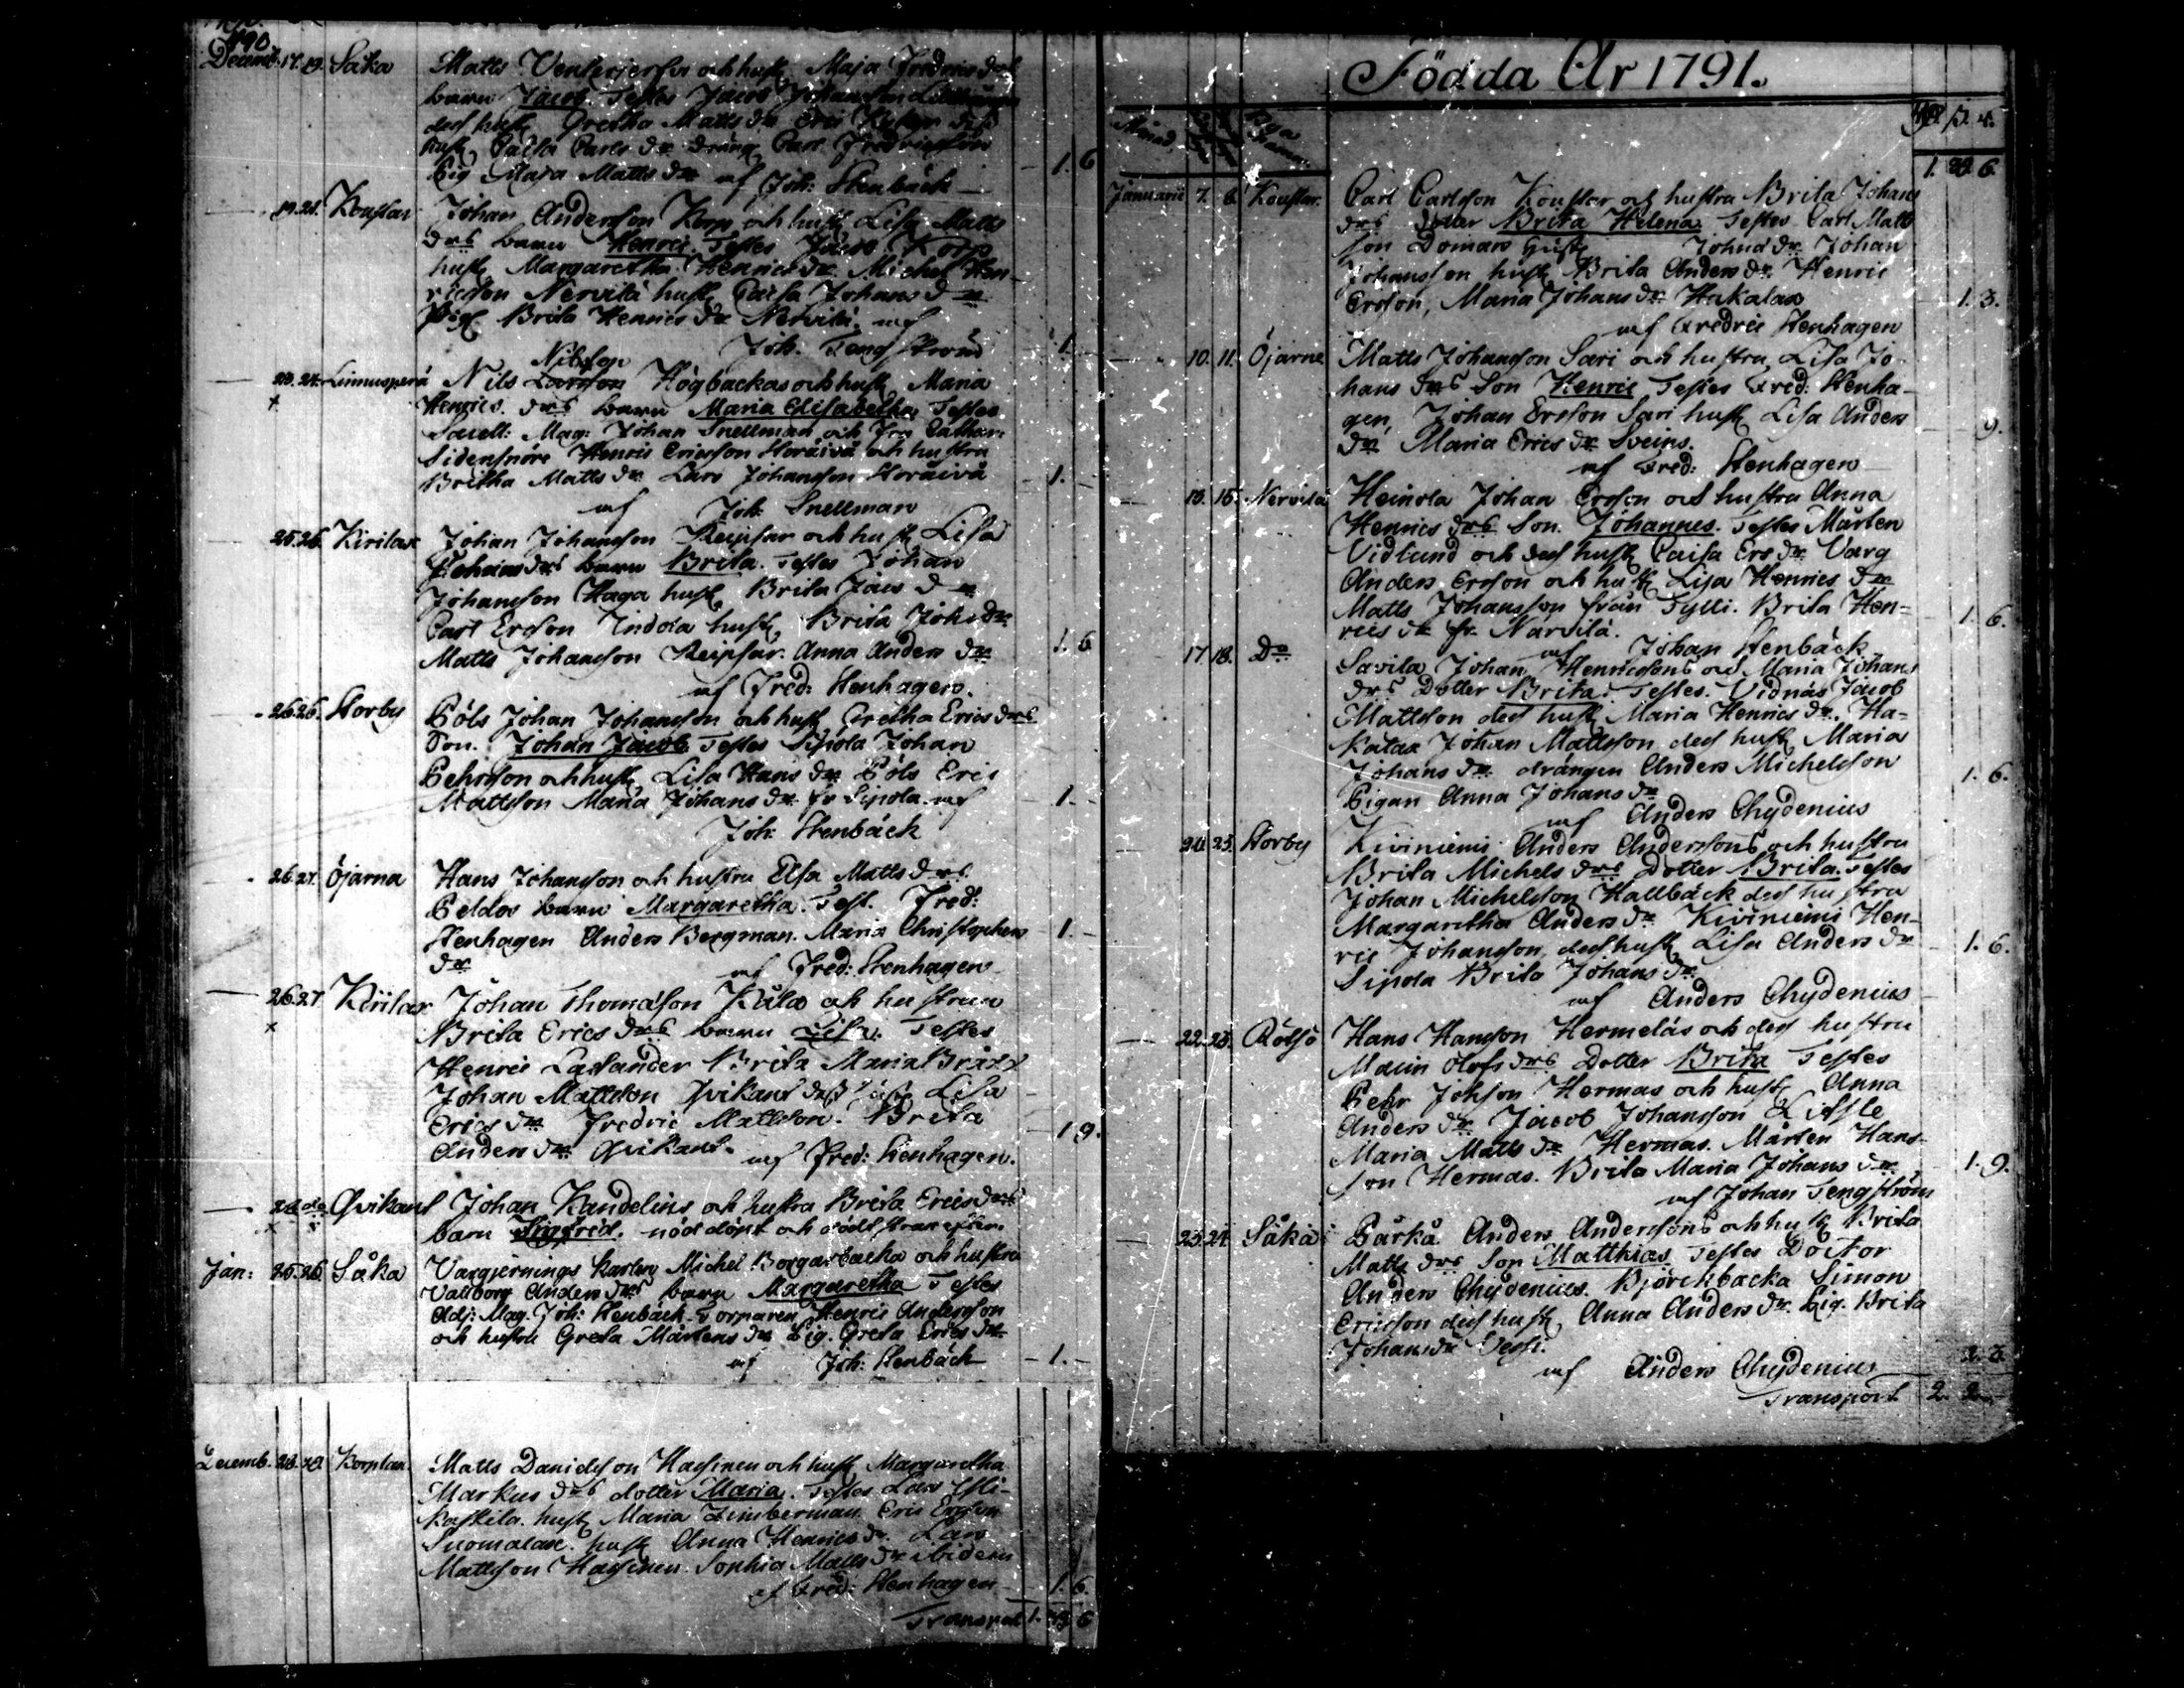 1790.
Decemb. 17. 19. Såka Matts och hust. Maja Fredrics drs
barn Jacob. Testes Jacob Johansson
dess hust. Gretha Matts dr Eric
hust. Caisa Carls dr dräng Carl Fredricsson
Pig. Maria Matts dr af Joh: Stenbäck — 1. 6
19. 21. Kouslar Johan Andersson Korp och hust. Lisa Matts
drs barn Henric. Testes Jacob Korp
hust. Margaretha Henrics dr Michel Hen-
ricsson Nervilä hust. Caisa Johans dr
Pig. Brita Henrics dr Nervilä. af
Joh. Tengström 1. -
Nilsson
23. 24. Linnusperä Nils Larsson Högbacka och hust. Maria
Henrics drs barn Maria Elisabetha Testes
Sacell: Mag: Johan Snellman och Fru Cathar:
Sidensnöre Henric Ericsson Storäivä och hustru
Britha Matts dr Lars Johansson Storäivä 1. -
af Joh. Snellman
25. 26. Kirilax Johan Johansson Reipsar och hust. Lisa
Johans drs barn Brita. Testes Johan
Johansson Haga hust. Brita Jacs dr
Carl Ersson Indola hust. Brita Johs dr
Matts Johansson Reipsar. Anna Anders dr 1. 6
af Fred: Stenhagen.
26. 26. Storby Påls Johan Johansson och hust. Gretha Erics drs
Son. Johan Jacob Testes Sipola Johan
Pehrsson och hust. Lisa Hans dr Påls Eric
Mattsson Maria Johans dr fr Sipola. af 1. -
Joh: Stenbäck
26. 27. Öjarna Hans Johansson och hustru Elsa Matts drs
Peldos barn Margaretha. Test. Fred:
Stenhagen Anders Bergman. Maria Christophers 1. -
dr af Fred: Stenhagen
26. 27 Kirilax Johan Thomasson Kåla och hustrun
Brita Erics drs barn Lisa. Testes
Henric Laslander Brita Maria Bråxx
Johan Mattsson Qvikant dess hust. Lisa
Erics dr Fredric Mattsson. Brita
Anders dr Qvikant. af Fred: Stenhagen. 1 9.
28. do Qvikant Johan Kandelins och hustru Brita Erics drs
barn Sigfred. nöddöpt och dödt strax efter.
Jan: 25. 26. Såka Vargjernings karlen Michel Borgarbacka och hustru
Vallborg Anders drs barn Margaretha Testes
Adj: Mag. Joh: Stenbäck Henric Andersson
och hustru Greta Mårtens dr Pig. Greta Erics dr
af Joh: Stenbäck — 1. -
Decemb. 28. 29. Korplax. Matts Danielsson Hassinen och hust. Margaretha
Markus drs dotter Maria. Testes Lars Isli-
kaskila hust. Maria Zimberman. Eric Ersson
Suomalax. hust. Anna Henrics dr. Lars
Mattsson Hassinen. Sophia Matts dr ibidem
af Fred: Stenhagen 1. 6.
Transport 1. 6
Födda År 1791.
Månad
Januarii 7. 8. Kouslar. Carl Carlsson Kouslar och hustru Brita Johans
drs dotter Brita Helena. Testes Carl Matts
son Domars hust. Johns dr Johan
Johansson hust. Brita Anders dr. Henric
Ersson, Maria Johans dr Hakalax 1. 3.
af Fredric Stenhagen
10. 11. Öjarna Matts Johansson Sari och hustru Lisa Jo-
hans drs Son Henric Testes Fred: Stenha-
gen, Johan Ersson Sari hust. Lisa Anders
dr Maria Erics dr Sveins. 9.
af Fred: Stenhagen
10. 15. Nervilä Heinola Johan Ersson och hustru Anna
Henrics drs Son. Johannes. Testes Mårten
Vidlund och dess hust. Caisa Ers dr Varg
Anders Ersson och hust. Lisa Henrics dr
Matts Johansson från Tylli. Brita Hen-
rics dr fr. Närvilä. 1. 6.
af Johan Stenbäck
17. 18. Do Savila Johan Henricssons och Maria Johans
drs Dotter Brita. Testes. Vidnäs Jacob
Mattsson dess hust. Maria Henrics dr. Ha-
kalax Johan Mattsson dess hust. Maria
Johans dr drängen Anders Michelsson
Pigan Anna Johans dr 1. 6.
af Anders Chydenius
24. 25. Storby Kiviniemi Anders Anderssons och hustru
Brita Michels drs Dotter Brita. Testes
Johan Michelsson Hallbäck dess hustru
Margaretha Anders dr Kiviniemi Hen-
ric Johansson, dess hust. Lisa Anders dr 1. 6.
Sipola Brita Johans dr
af Anders Chydenius
22. 23. Rötsjö Hans Hansson Hermeläs och dess hustru
Malin Olofs drs Dotter Brita Testes
Pehr Johsson Hermas och hust. Anna
Anders dr Jacob Johansson Lissle
Maria Matts dr Hermas. Mårten Hans-
son Hermas. Brita Maria Johans dr 1. 9.
af Johan Tengström
23. 24. Såka Bårkå Anders Anderssons och hust. Brita
Matts drs Son Matthias Testes Doctor
Anders Chydenius. Björckbacka Simon
Ericsson dess hust. Anna Anders dr. Pig. Brita
Johans dr 2. 3.
af Anders Chydenius
Transport 2.